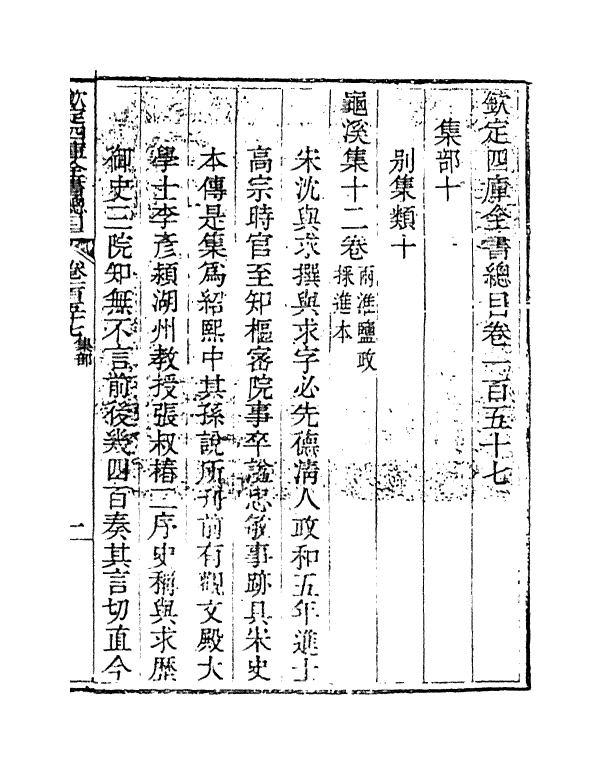 欽定四庫全書總目卷一百五十七
集部十
別集類十
龜溪集十二卷兩淮鹽政採進本
宋沈與求撰與求字必先德淸人政和五年進士
高宗時官至知樞密院事卒諡忠敏事跡具宋史
本傳是集爲紹熙中其孫說所刊前有觀文殿大
學士李彥穎湖州教授張叔椿二序史稱與求歷
御史三院知無不言前後幾四百奏其言切直今
欽定四庫全書總目 卷一百五十七 集部 一